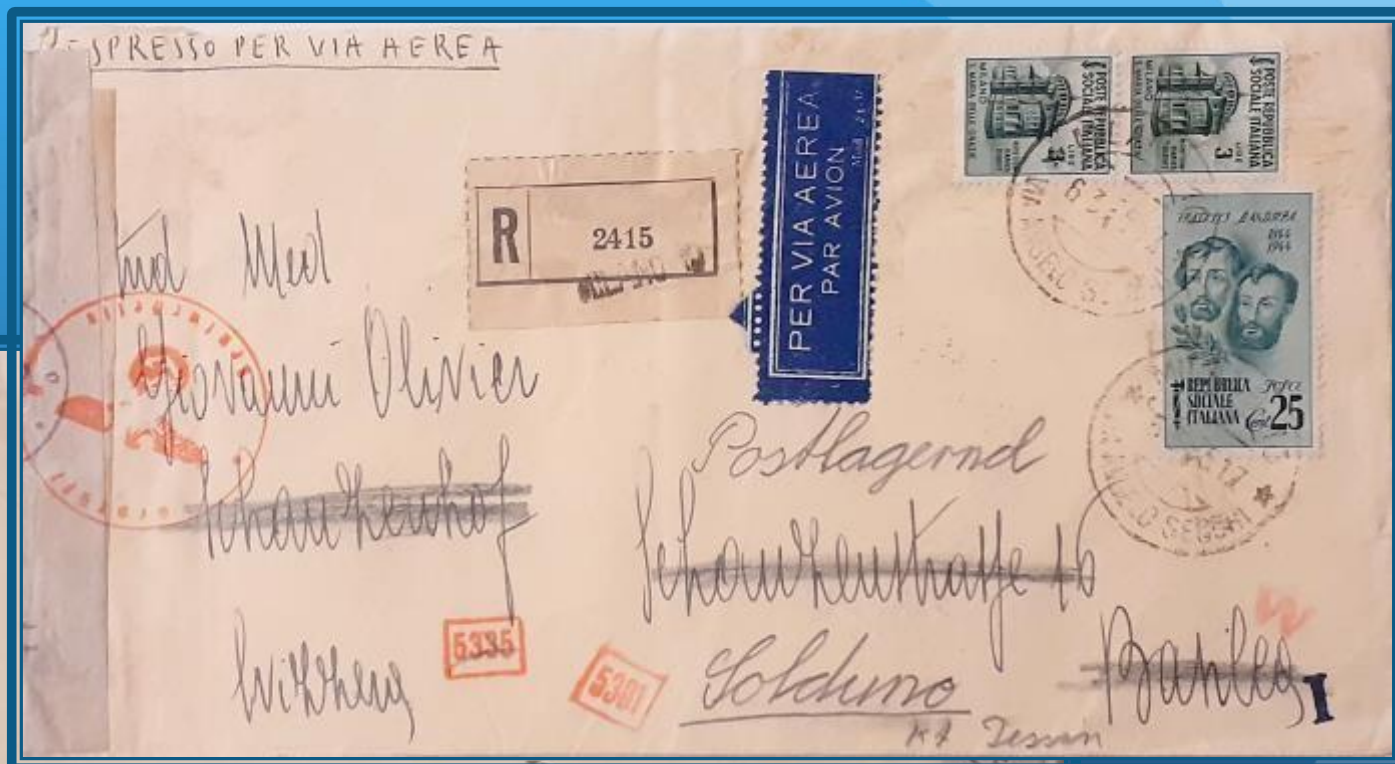 SPRESSO PER VIA AEREA
R 2415
PER VIA AEREA
PAR AVION
POSTE REPUBBLICA
SOCIALE ITALIANA
LIRE
3
MILANO
POSTE REPUBBLICA
SOCIALE ITALIANA
LIRE
3
MILANO
FRATELLI BANDIERA
1844
1944
REPUBBLICA
SOCIALE
ITALIANA
Cent 25
Med
Giovanni Olivier
Schanzenhof
Svizzera
Postlagernd
Schanzenstrasse 16
Solduno
Kt Tessin
Basilea
5335
5381
I